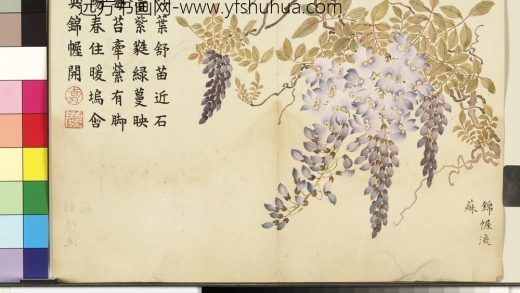 方书画网-www.yfshuhua.com
葉舒苗近石
紫綠蔓映
苔牽縈有脚
春住暖塢會
錦幄開
嘉
慶
錦幄流
蘇